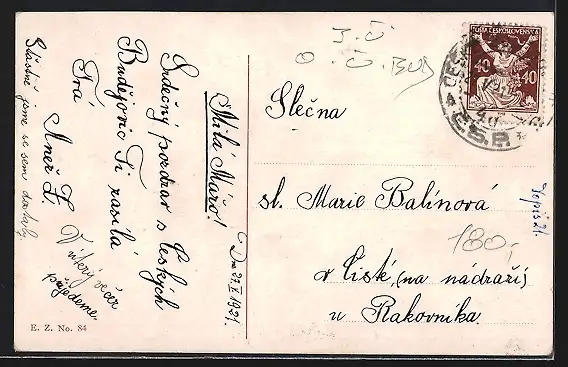 Milá Mářo!
Dne 27.V 1921.
Srdečný pozdrav s Českých
Budějovic Ti zasílá
Tvá
Anež Z.
V úterý večer
přijedeme.
Šťastně jsme se sem dostaly
E. Z. No. 84
J. Č
O. Č. BUD
Slečna
sl. Marie Balínová
v Lisk, (na nádraží)
u Rakovníka.
180,-
Topis 21.
POŠTA ČESKOSLOVENSKÁ
40 40
ČESK
ČSR